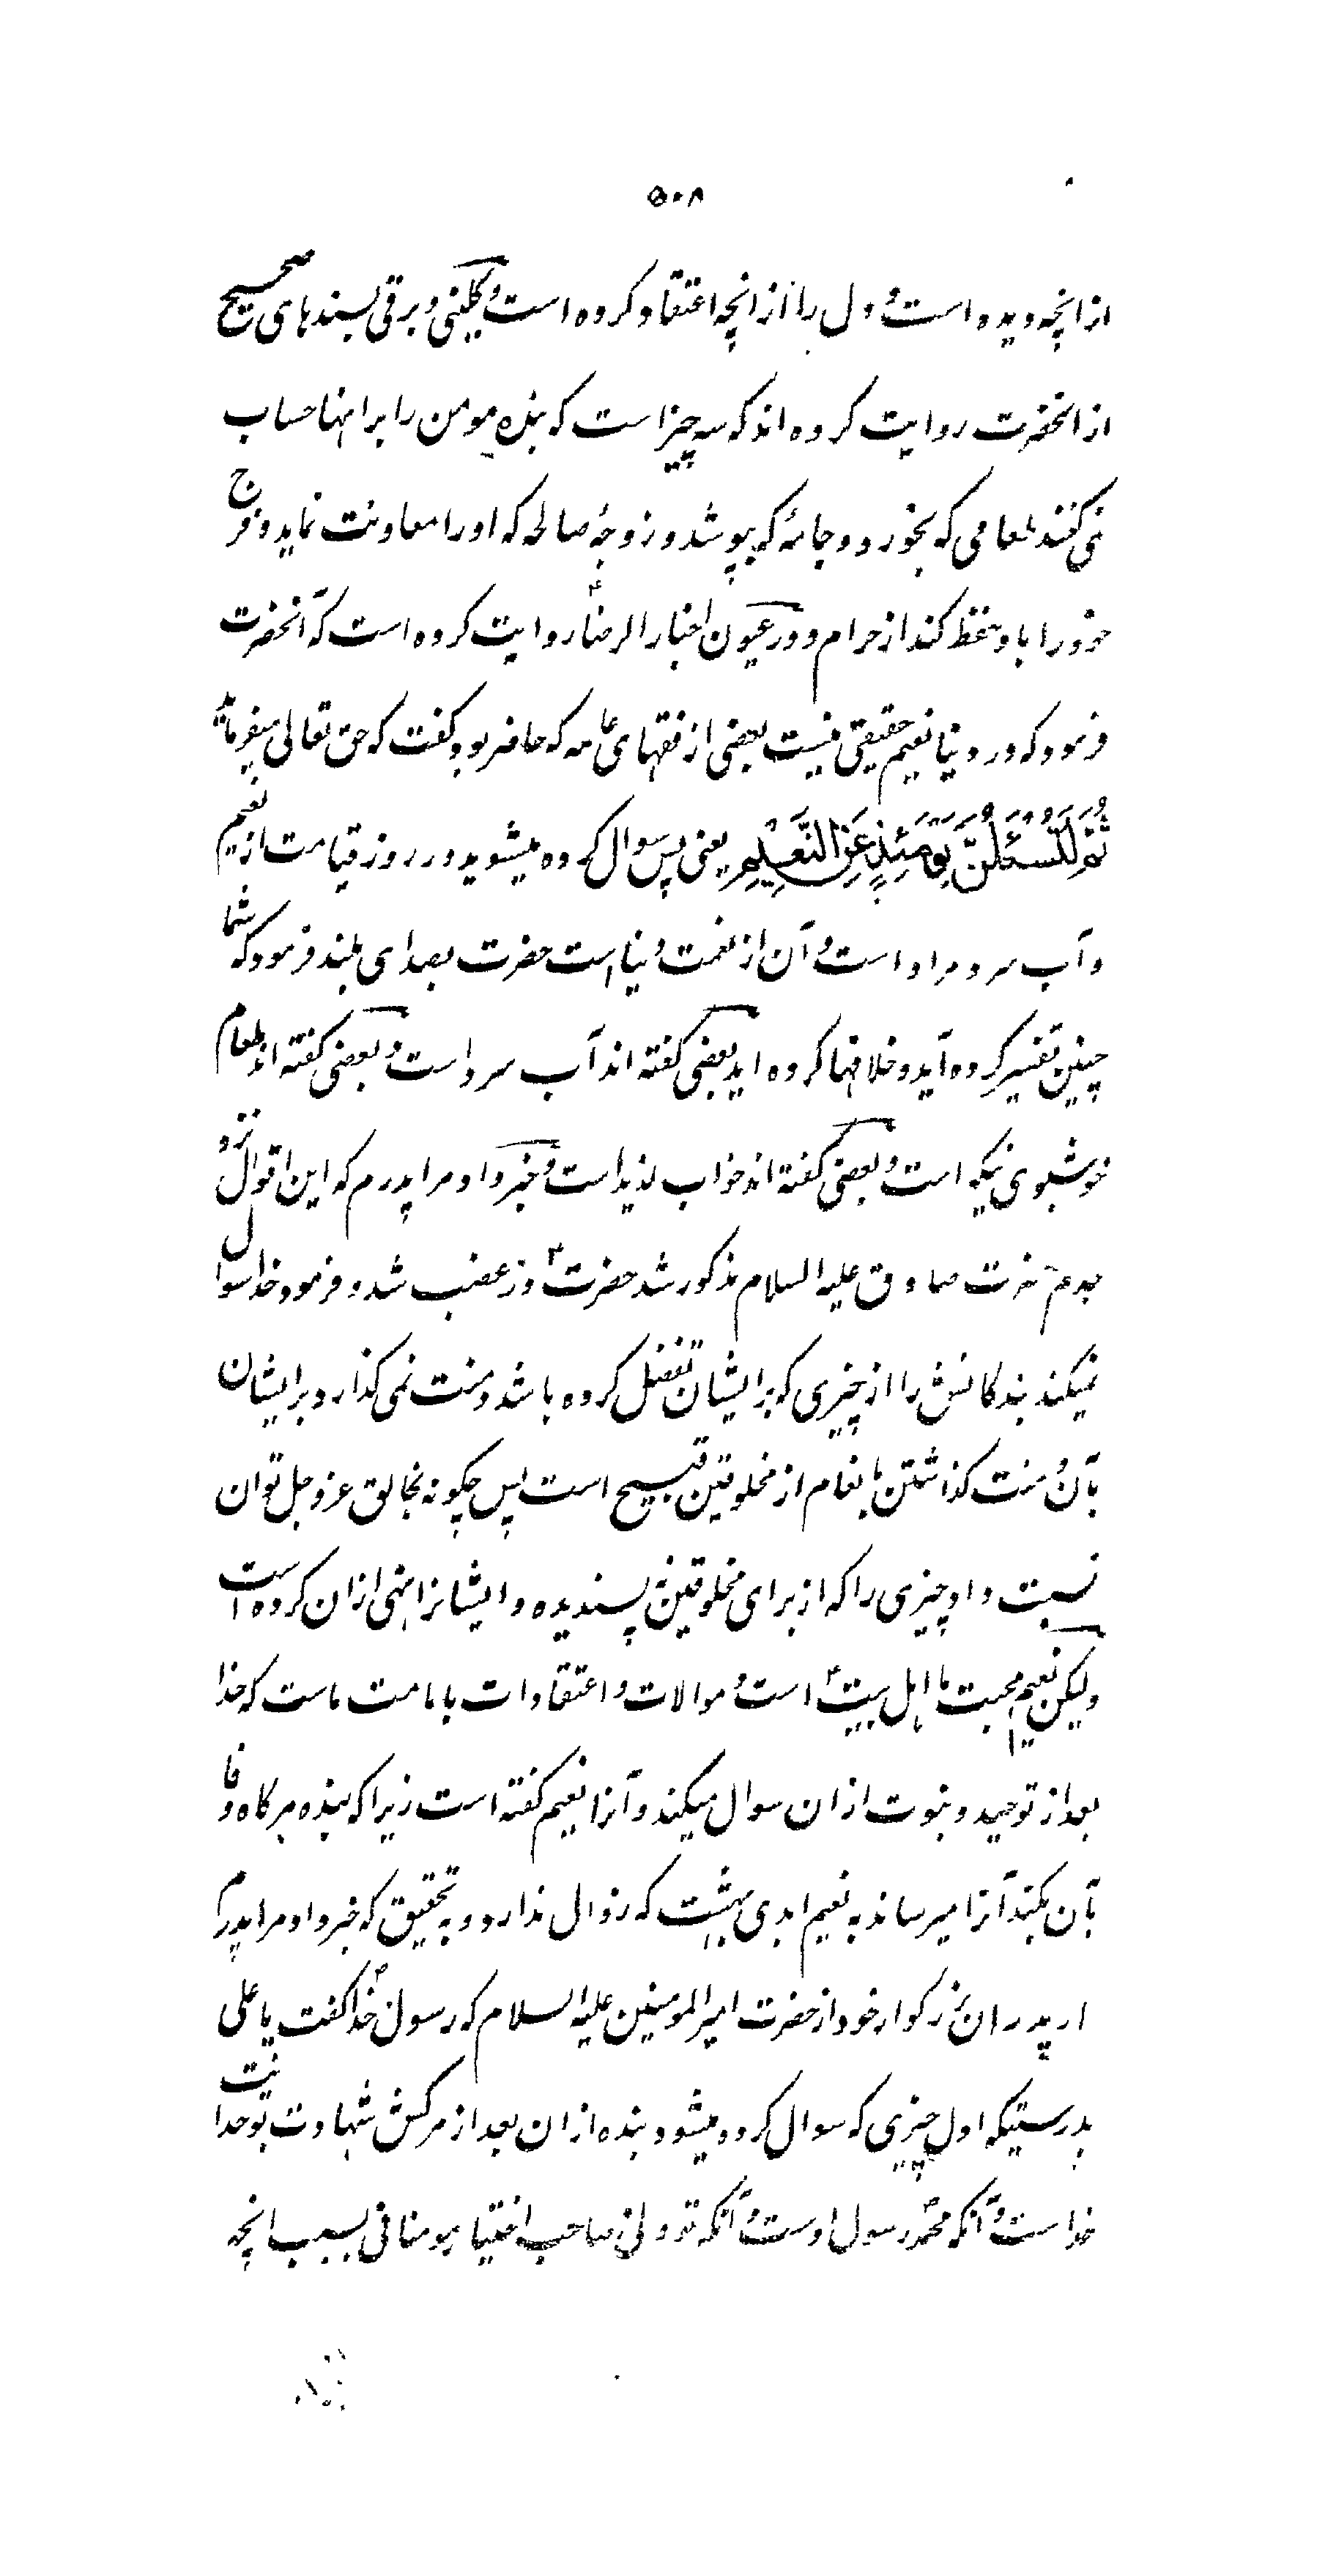 ۵۰۸
از انچه دیده است و دل را از انچه اعتقاد کرده است و کلینی و برقی بسندهای صحیح
از انحضرت روایت کرده اند که سه چیز است که بنده مومن را بر انها حساب
نمی کنند طعامی که بخورد و جامهٔ که بپوشد و زوجهٔ صالحه که او را معاونت نماید و فرج
خود را باو حفظ کند از حرام و در عیون اخبار الرضاء روایت کرده است که آنحضرت
فرمود که در دنیا نعیم حقیقی نیست بعضی از فقهای عامه که حاضر بود گفت که حق تعالی میفرماید
ثُمَّ لَتُسْئَلُنَّ یَوْمَئِذٍ عَنِ النَّعِیْمِ یعنی پس سوال کرده میشوید در روز قیامت از نعیم
و آب سرد مراد است و آن از نعمت دنیا است حضرت بصدای بلند فرمود که شما
چنین تفسیر کرده آید و خلافها کرده اید بعضی گفته اند آب سرد است و بعضی گفته اند طعام
خوشبوی نیکو است و بعضی گفته اند خواب لذیذ است و خبر داد مرا پدرم که این اقوال نزد
حضرت صادق علیه السلام مذکور شد حضرتؑ در غضب شد و فرمود خدا سوال
نمیکند بندگانش را از چیزی که بر ایشان تفضل کرده باشد و منت نمی گذارد بر ایشان
بآن و منت گذاشتن بانعام از مخلوقین قبیح است پس چگونه بخالق عز و جل توان
نسبت داد چیزی را که از برای مخلوقین نپسندیده و ایشانرا نهی ازان کرده است
و لیکن نعیم محبت ما اهل بیتؑ است و موالات و اعتقادات بامامت ماست که خدا
بعد از توحید و نبوت ازان سوال میکند و آنرا نعیم گفته است زیرا که بنده هرگاه وفا
بآن بکند آنرا میرساند به نعیم ابدی بهشت که زوال ندارد و به تحقیق که خبر داد مرا پدرم
از پدران بزرگوار خود از حضرت امیرالمومنین علیه السلام که رسول خداؐ گفت یا علی
بدرستیکه اول چیزی که سوال کرده میشود بنده ازان بعد از مرگش شهادت بوحدانیت
خداست و آنکه محمدؐ رسول اوست و آنکه تو ولی و صاحب اختیار مومنانی بسبب انچه